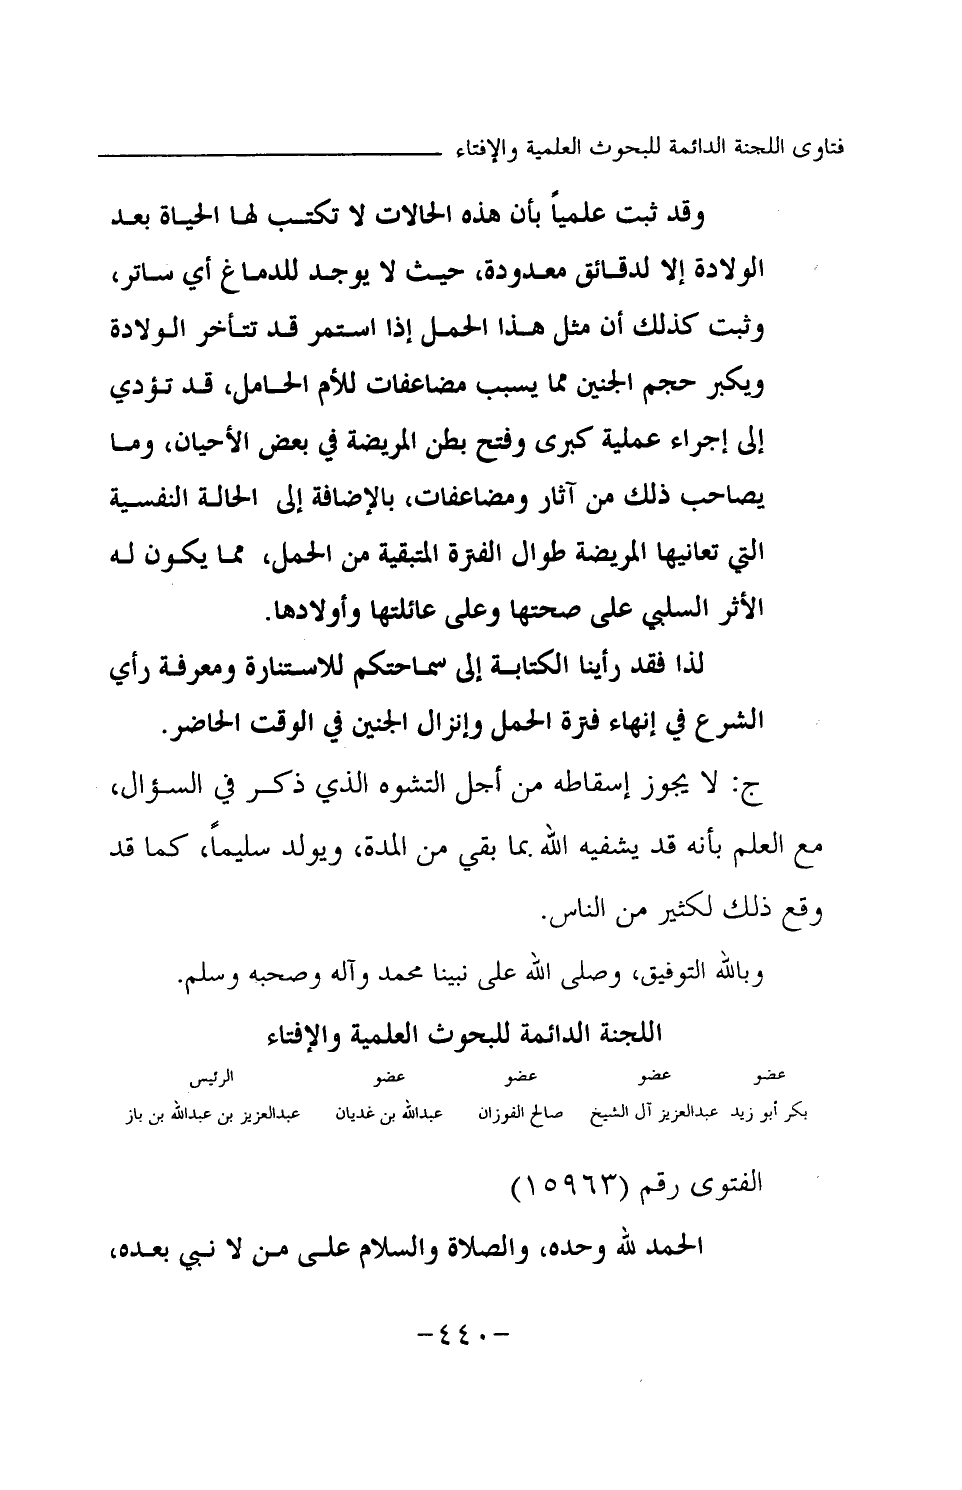 فتاوى اللجنة الدائمة للبحوث العلمية والإفتاء
وقد ثبت علمياً بأن هذه الحالات لا تكتب لها الحياة بعد
الولادة إلا لدقائق معدودة، حيث لا يوجد للدماغ أي ساتر،
وثبت كذلك أن مثل هذا الحمل إذا استمر قد تتأخر الولادة
ويكبر حجم الجنين مما يسبب مضاعفات للأم الحامل، قد تؤدي
إلى إجراء عملية كبرى وفتح بطن المريضة في بعض الأحيان، وما
يصاحب ذلك من آثار ومضاعفات، بالإضافة إلى الحالة النفسية
التي تعانيها المريضة طوال الفترة المتبقية من الحمل، مما يكون له
الأثر السلبي على صحتها وعلى عائلتها وأولادها.
لذا فقد رأينا الكتابة إلى سماحتكم للاستنارة ومعرفة رأي
الشرع في إنهاء فترة الحمل وإنزال الجنين في الوقت الحاضر.
ج: لا يجوز إسقاطه من أجل التشوه الذي ذكر في السؤال،
مع العلم بأنه قد يشفيه الله بما بقي من المدة، ويولد سليماً، كما قد
وقع ذلك لكثير من الناس.
وبالله التوفيق، وصلى الله على نبينا محمد وآله وصحبه وسلم.
اللجنة الدائمة للبحوث العلمية والإفتاء
عضو عضو عضو عضو الرئيس
بكر أبو زيد عبدالعزيز آل الشيخ صالح الفوزان عبدالله بن غديان عبدالعزيز بن عبدالله بن باز
الفتوى رقم (١٥٩٦٣)
الحمد لله وحده، والصلاة والسلام على من لا نبي بعده،
-٤٤٠-